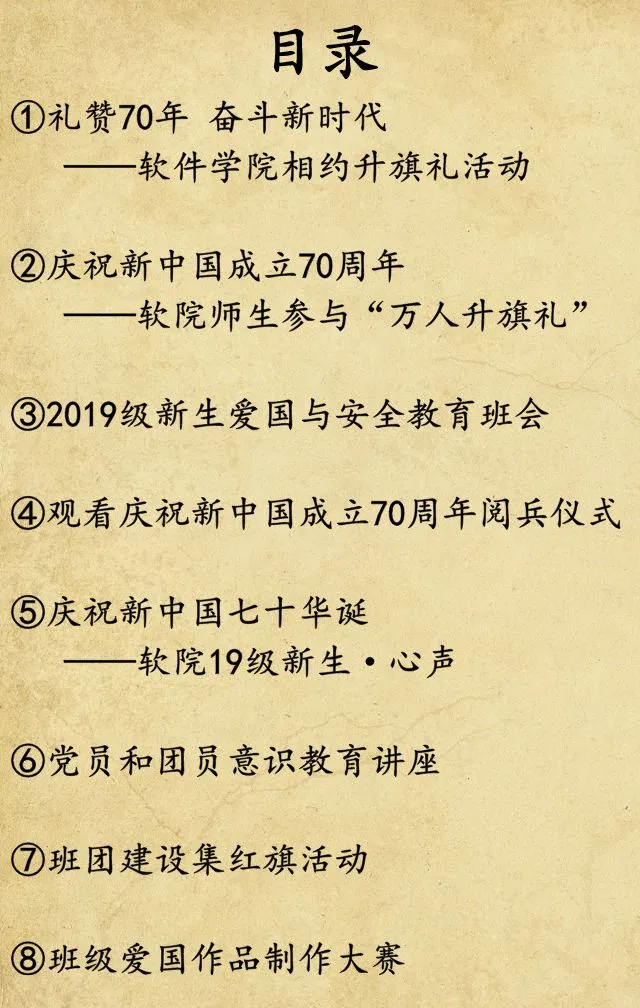 目录
①礼赞70年 奋斗新时代
——软件学院相约升旗礼活动
②庆祝新中国成立70周年
——软院师生参与“万人升旗礼”
③2019级新生爱国与安全教育班会
④观看庆祝新中国成立70周年阅兵仪式
⑤庆祝新中国七十华诞
——软院19级新生·心声
⑥党员和团员意识教育讲座
⑦班团建设集红旗活动
⑧班级爱国作品制作大赛